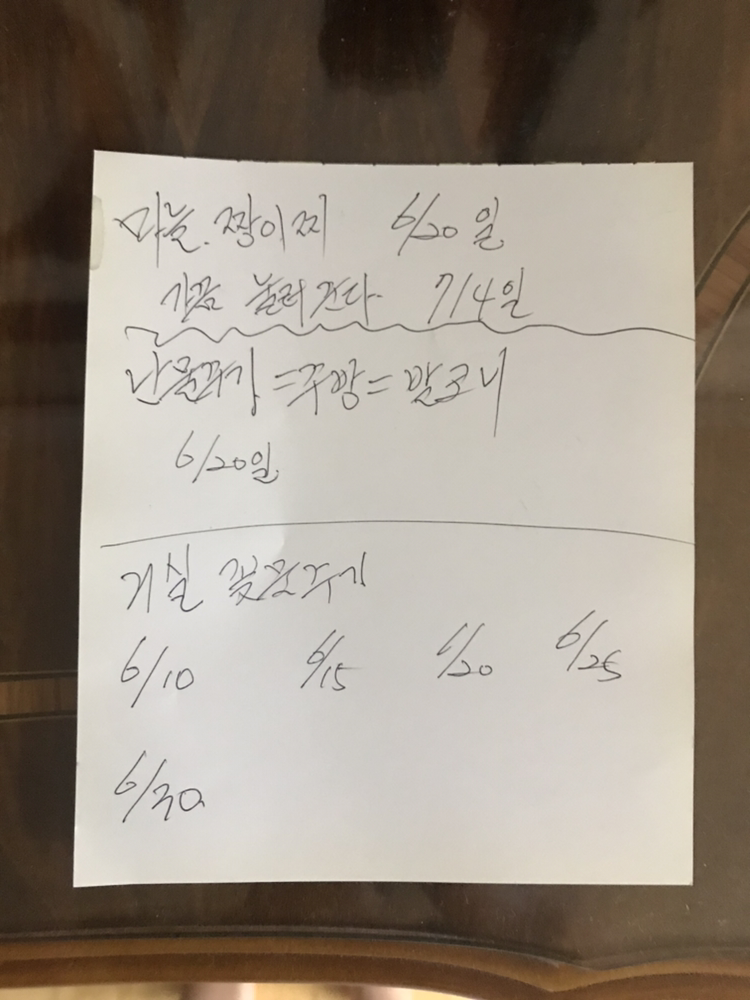 마늘.짱이찌 6/20일
가끔 눌러준다. 7/4일
난물주기=주방=발코니
6/20일
거실 꽃물주기
6/10 6/15 6/20 6/25
6/30